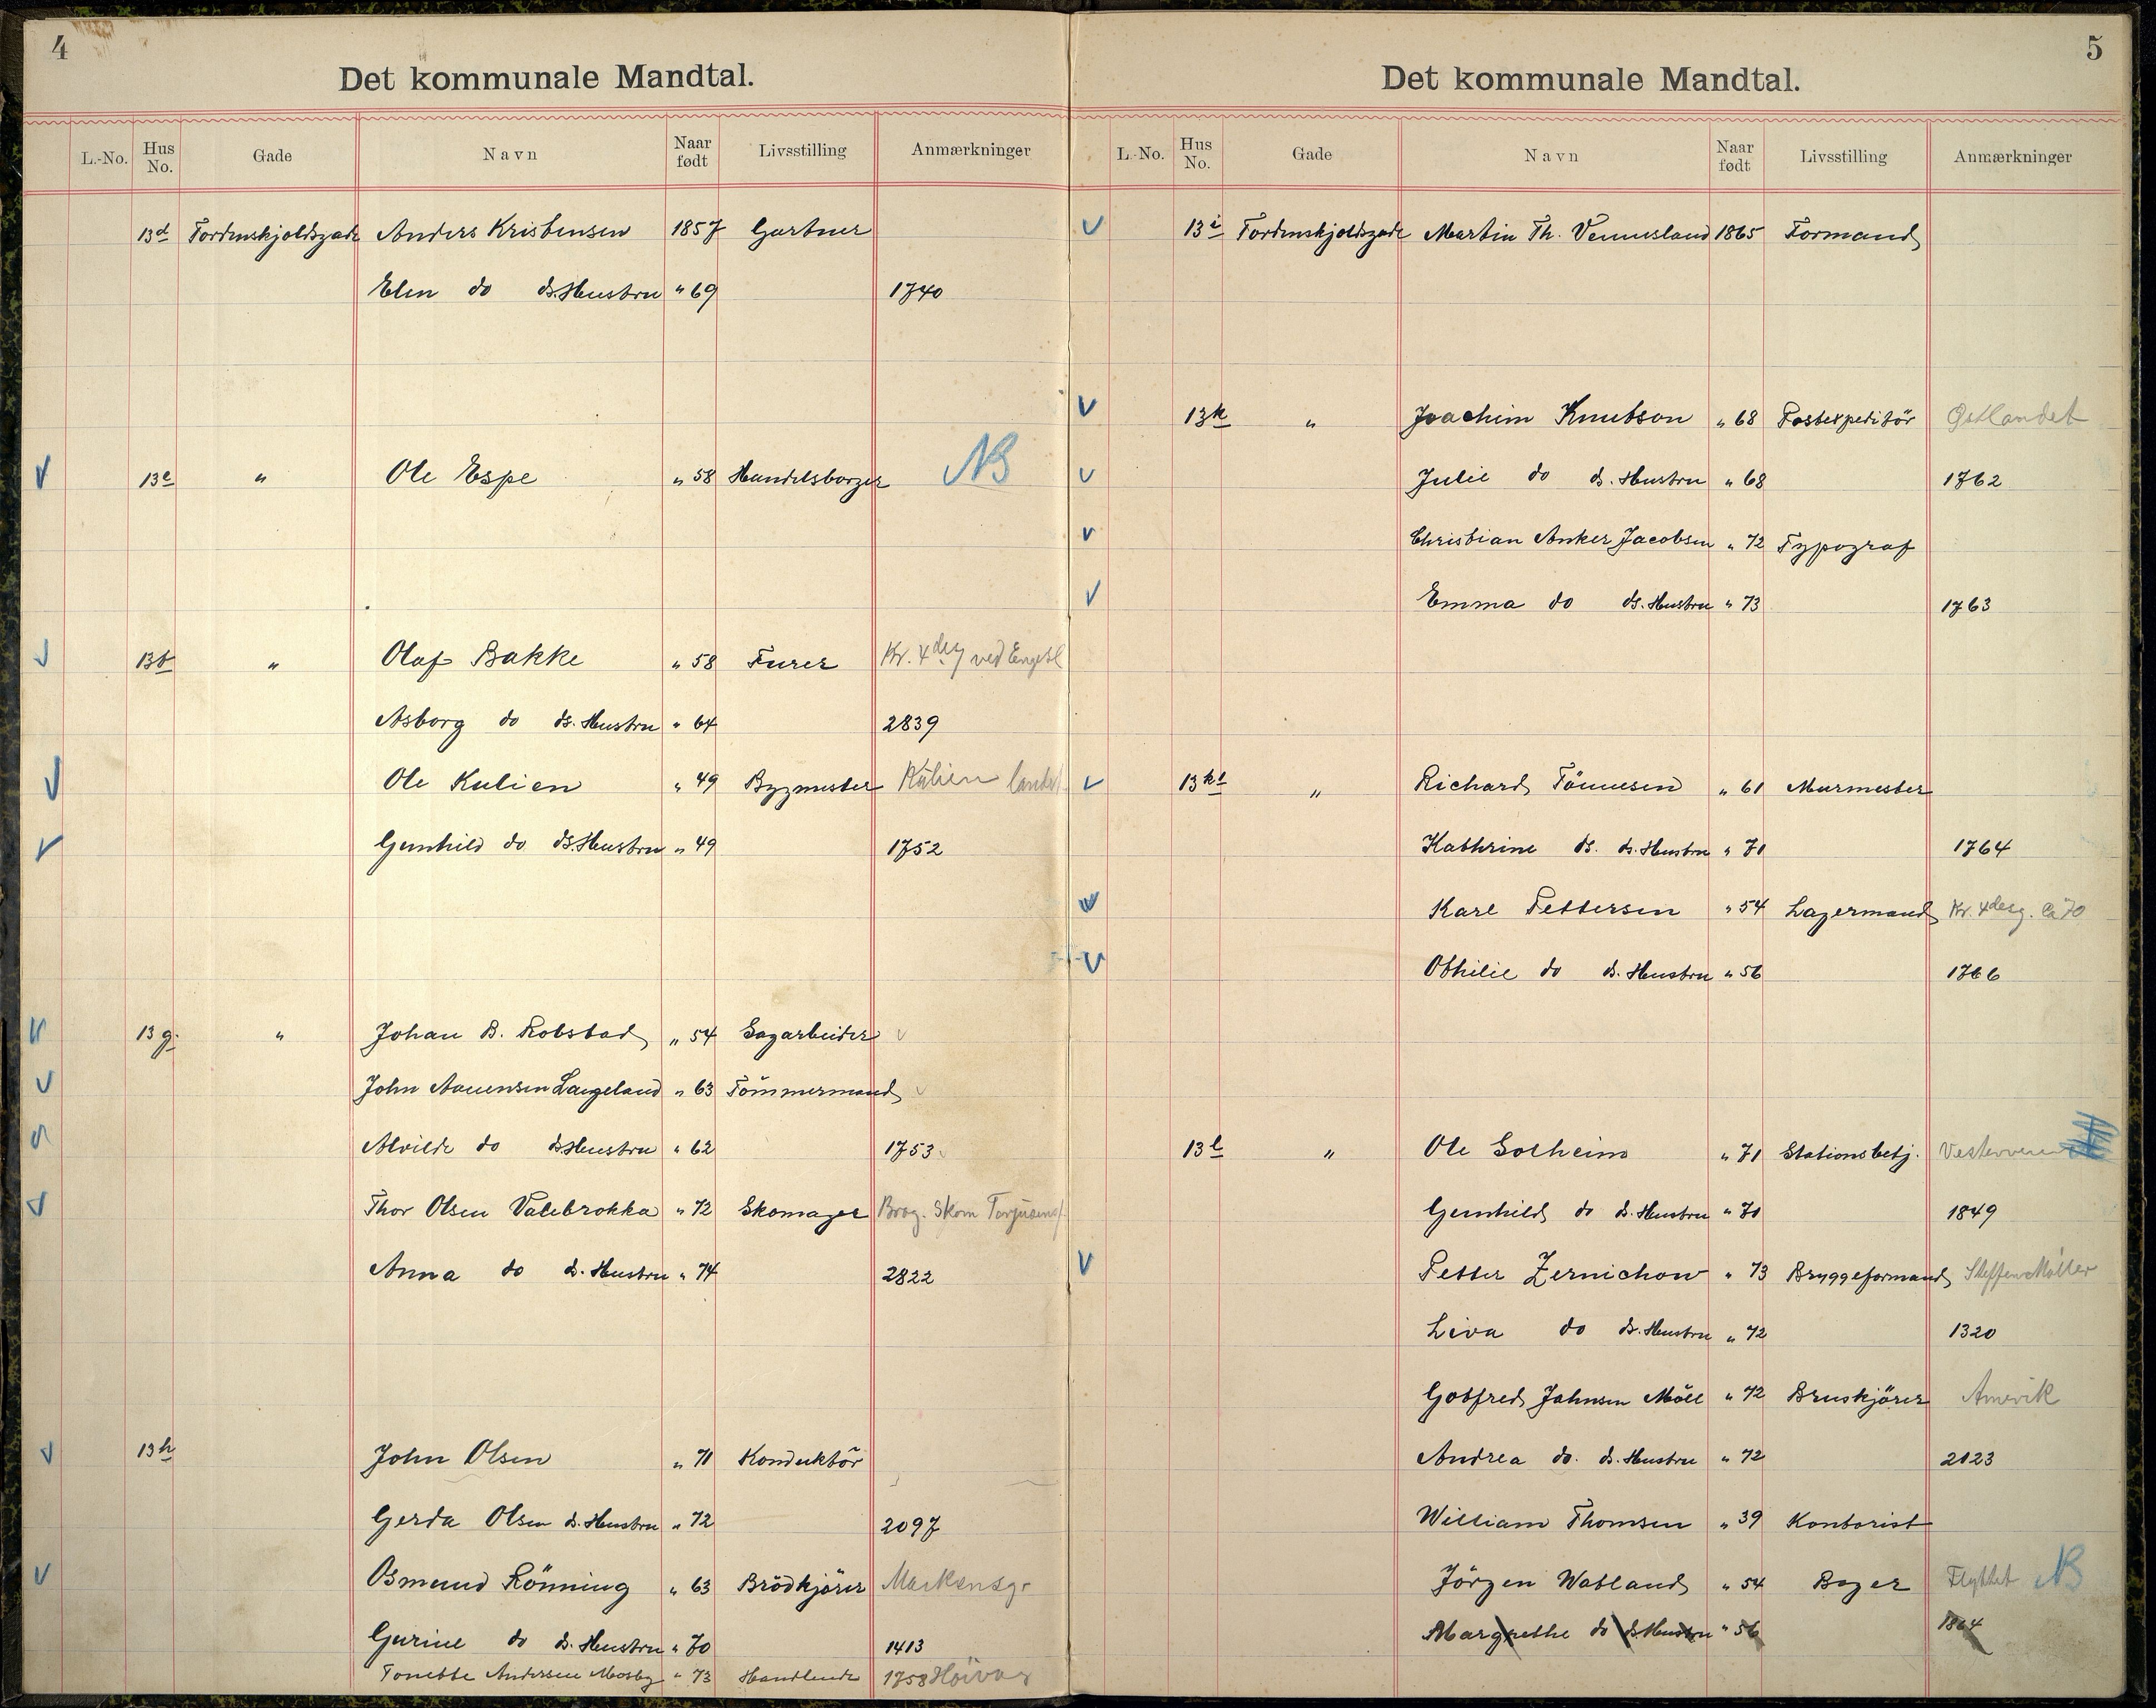 4
Det kommunale Mandtal.
L.-No. Hus No. Gade Navn Naar født Livsstilling Anmærkninger
13d Tordenskjoldsgade Anders Kristensen 1857 Gartner
Elen do ds. Hustru " 69 1740
13e " Ole Espe " 58 Handelsborger NB
13f " Olaf Bakke " 58 Furer Kr. 4de g ved Engesl
Asborg do ds. Hustru " 64 2839
Ole Kulien " 49 Bygmester Kulien landet
Gunhild do ds. Hustru " 49 1752
13g. " Johan B. Robstad " 54 Sagarbeider
John Aanensen Langeland " 63 Tömmermand
Alvilde do ds Hustru " 62 1753
Thor Olsen Valebrokka " 72 Skomager Brog. Skom Torjusens
Anna do ds. Hustru " 74 2822
13h John Olsen " 71 Konduktör
Gerda Olsen ds. Hustru " 72 2097
Osmund Rönning " 63 Brödkjörer Markensg.
Gurine do ds. Hustru " 70 1413
Tonette Andersen Mosby " 73 Handlende 1758
5
Det kommunale Mandtal.
L.-No. Hus No. Gade Navn Naar født Livsstilling Anmærkninger
13i Tordenskjoldsgade Martin Th. Vennesland 1865 Formand
13k " Joachim Knutson " 68 Postexpeditör Østlandet
Julie do ds. Hustru " 68 1762
Christian Anker Jacobsen " 72 Typograf
Emma do ds. Hustru " 73 1763
13k1 " Richard Tönnesen " 61 Murmester
Kathrine ds. ds. Hustru " 71 1764
Karl Pettersen " 54 Lagermand Kr. 4de g. 70
Othilie do ds. Hustru " 56 1766
13l " Ole Solheim " 71 Stationsbetj.
Gunhild do ds. Hustru " 70 1849
Petter Zernichow " 73 Bryggeformand Steffen Möller
Liva do ds. Hustru " 72 1320
Gotfred Johnsen Möll " 72 Bruskjörer Amerik
Andrea do. ds. Hustru " 72 2123
William Thomsen " 39 Kontorist
Jörgen Watland " 54 Bager Flyttet NB
Margrethe do ds Hustru " 56 1864